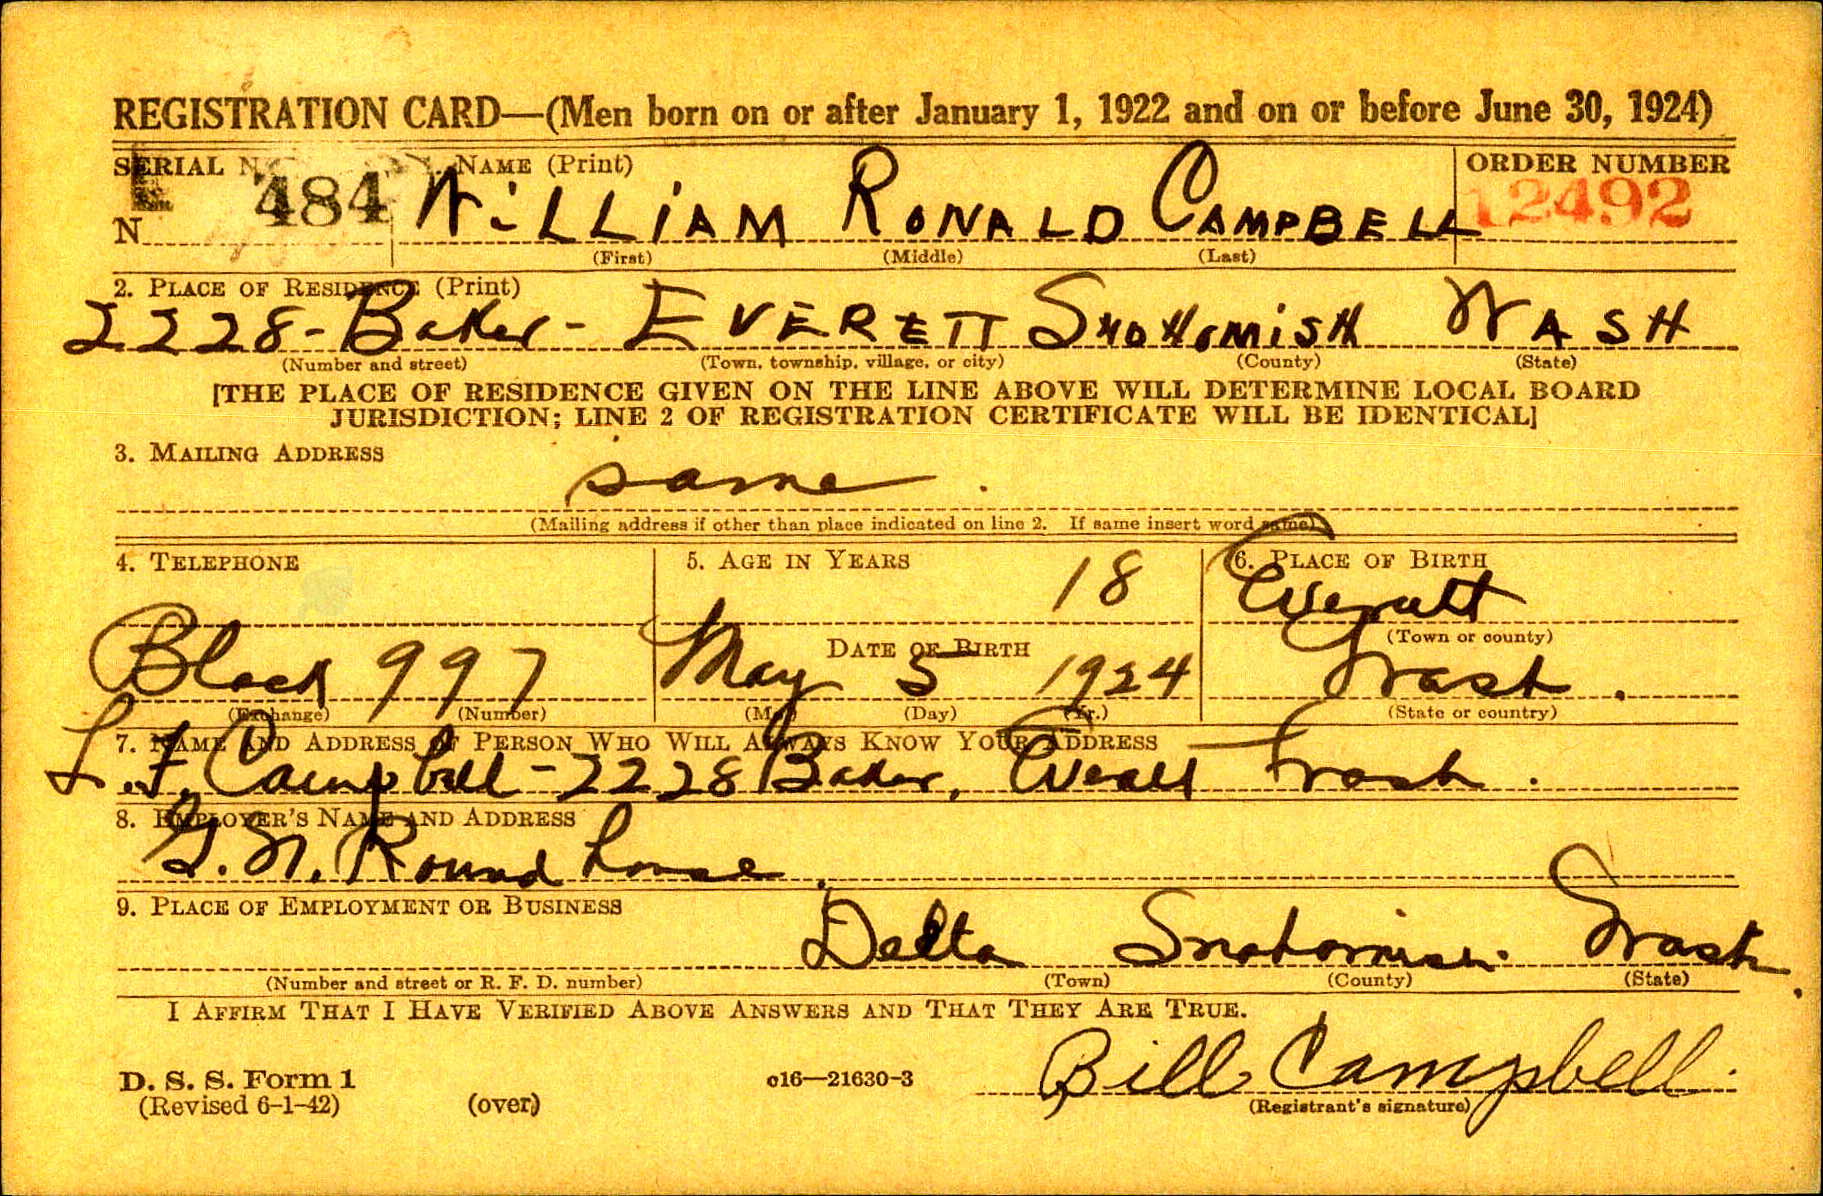 REGISTRATION CARD—(Men born on or after January 1, 1922 and on or before June 30, 1924)
SERIAL N 1. NAME (Print) ORDER NUMBER
N 484 WiLLiAM RONALD CAMPBELL 12492
(First) (Middle) (Last)
2. PLACE OF RESIDENCE (Print)
2228 - Baker - EVERETT SNOHOMiSH WASH
(Number and street) (Town, township, village, or city) (County) (State)
[THE PLACE OF RESIDENCE GIVEN ON THE LINE ABOVE WILL DETERMINE LOCAL BOARD
JURISDICTION; LINE 2 OF REGISTRATION CERTIFICATE WILL BE IDENTICAL]
3. MAILING ADDRESS
same.
(Mailing address if other than place indicated on line 2. If same insert word same)
4. TELEPHONE 5. AGE IN YEARS 6. PLACE OF BIRTH
18 Everett
DATE OF BIRTH (Town or county)
Black 997 May 5 1924 Wash.
(Exchange) (Number) (Mo.) (Day) (Yr.) (State or country)
7. NAME AND ADDRESS OF PERSON WHO WILL ALWAYS KNOW YOUR ADDRESS
L. F. Campbell - 2228 Baker, Everett Wash.
8. EMPLOYER'S NAME AND ADDRESS
G. N. Round house.
9. PLACE OF EMPLOYMENT OR BUSINESS
Delta Snohomish. Wash.
(Number and street or R. F. D. number) (Town) (County) (State)
I AFFIRM THAT I HAVE VERIFIED ABOVE ANSWERS AND THAT THEY ARE TRUE.
D. S. S. Form 1 c16—21630-3 Bill Campbell.
(Revised 6-1-42) (over) (Registrant's signature)